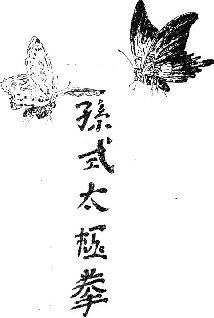 孫式太極拳